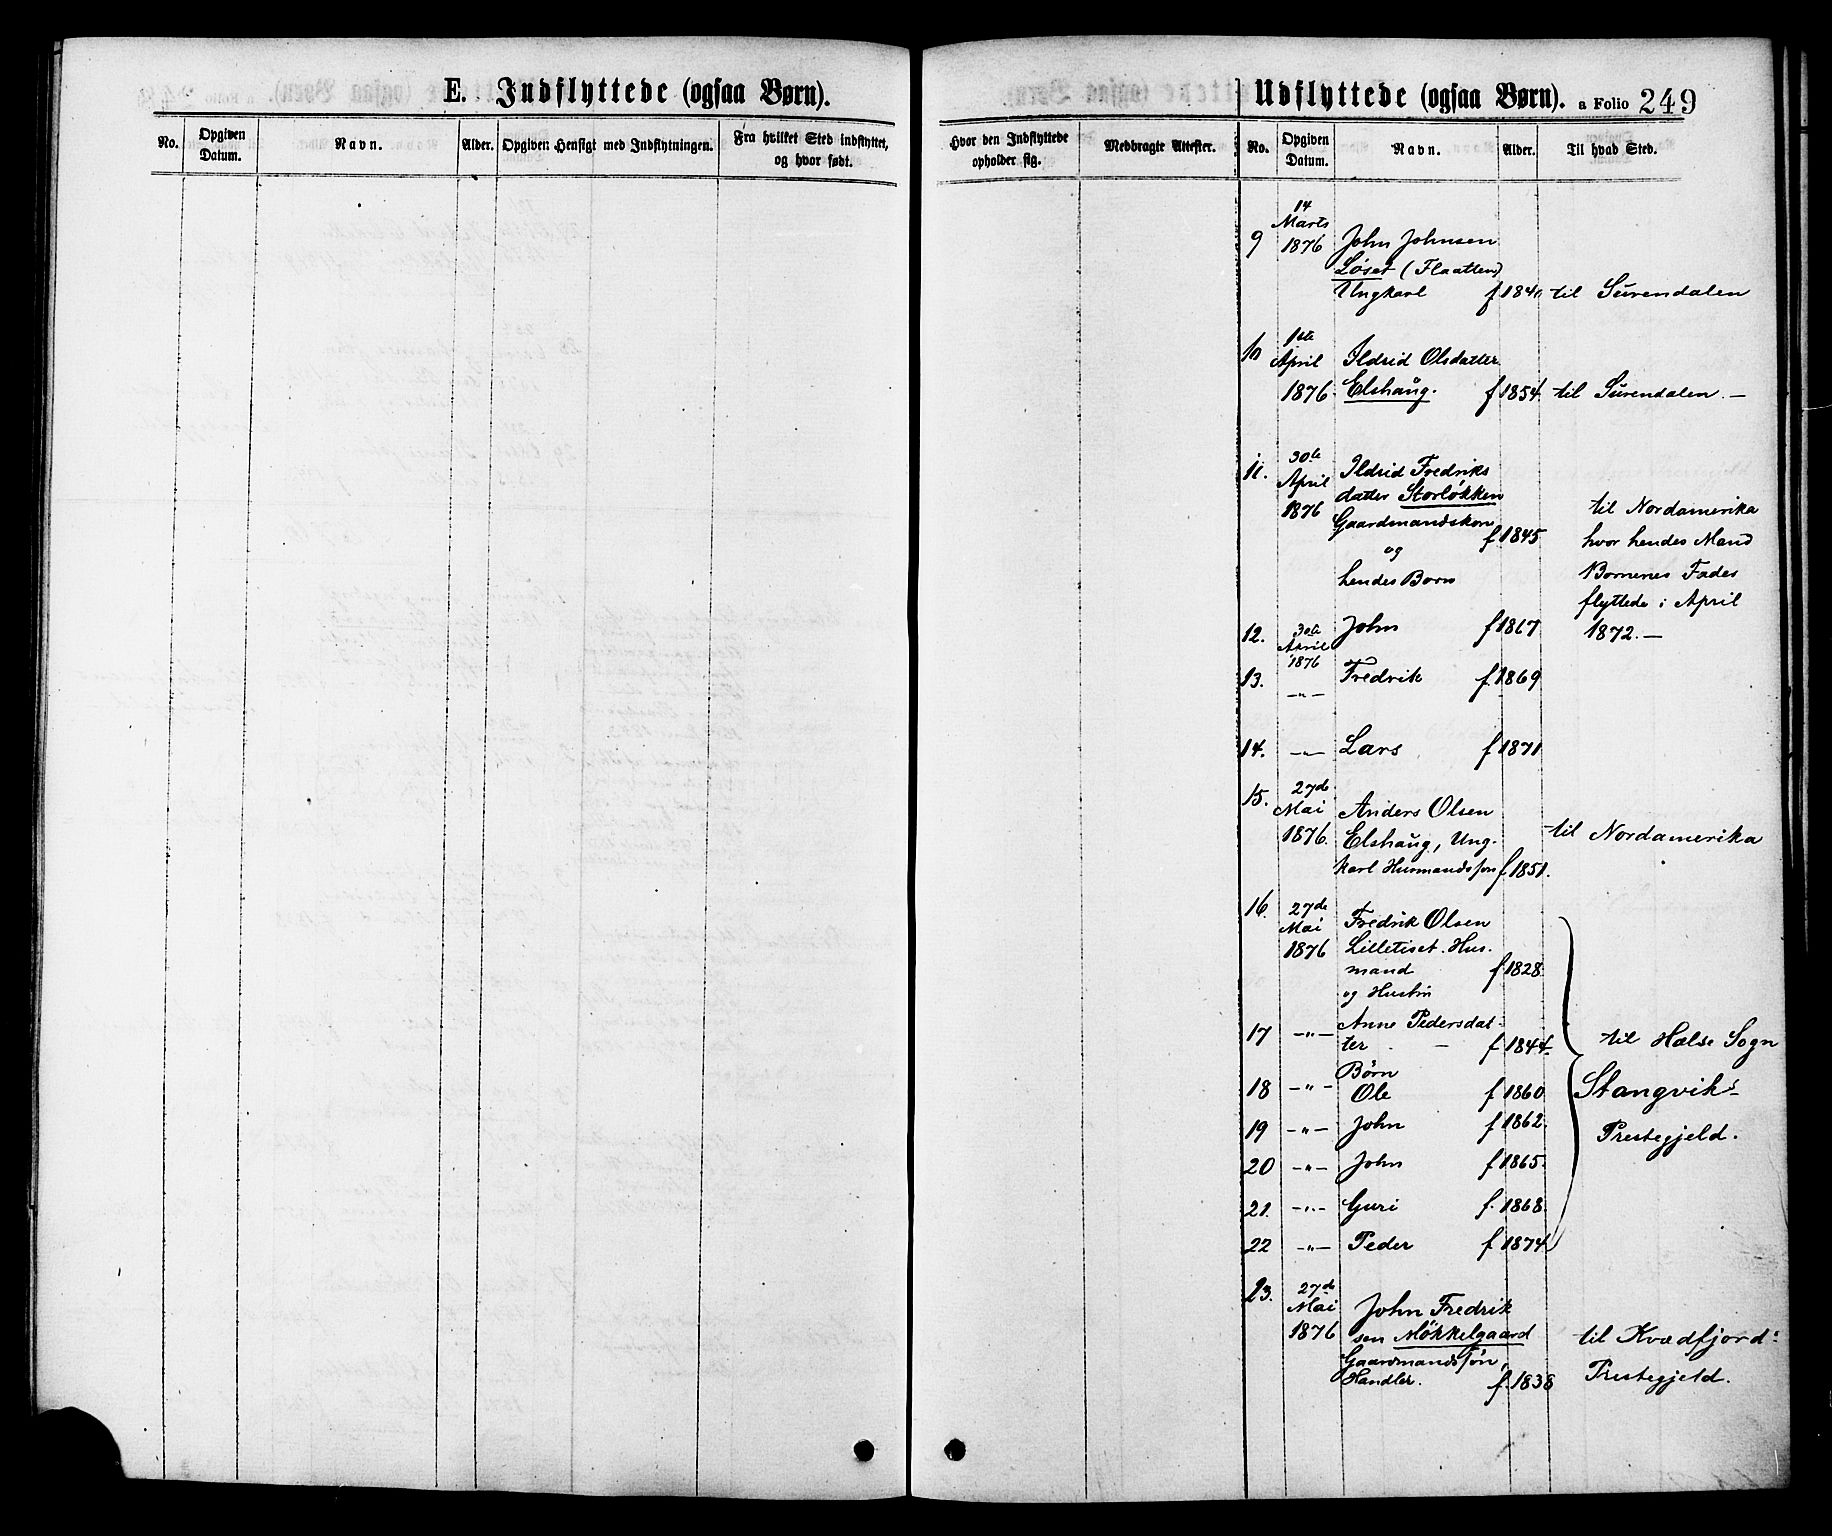 E. Indflyttede (ogsaa Børn).
No.
Opgiven
Datum.
Navn.
Alder.
Opgiven Hensigt med Indflytningen.
Fra hvilket Sted indflyttet,
og hvor født.
Udflyttede (ogsaa Børn). a Folio 249
Hvor den Indflyttede
opholder sig.
Medbragte Attester.
No.
Opgiven
Datum.
Navn.
Alder.
Til hvad Sted.
14
Marts
9 1876 John Johnsen
Løset (Flaatten)
Ungkarl f 1840 til Surendalen
1ste
10 April Ildrid Olsdatter
1876. Elshaug. f 1854. til Surendalen. —
30te
11. April Ildrid Fredriks
datter Storløkken til Nordamerika
1876 Gaardmandskon
f. 1845 hvor hendes Mand
og
hendes Born Bornenes Fader
flyttede i April
12. 30te John f 1867 1872. —
April
1876
13. —"— Fredrik f. 1869
14. —"— Lars f 1871
27de
15. Mai Anders Olsen
1876. Elshaug, Ung- til Nordamerika
karl Husmandssøn f. 1851.
16. 27de
Mai Fredrik Olsen
1876 Lilletiset. Hus.
mand f. 1828.
og Hustru
17 —"— Anne Pedersdat-
ter f. 1844. til Halse Sogn
Børn
18 —"— Ole f. 1860. Stangviks
19 —"— John f. 1862. Prestegjeld.
20 —"— John f. 1865.
21. —"— Guri f. 1868.
22 —"— Peder f. 1874.
23. 27de
Mai John Fredrik
1876 sen Møkkelgaard til Kvædfjord
Gaardmandssøn,
Handler. f. 1838 Prestegjeld.